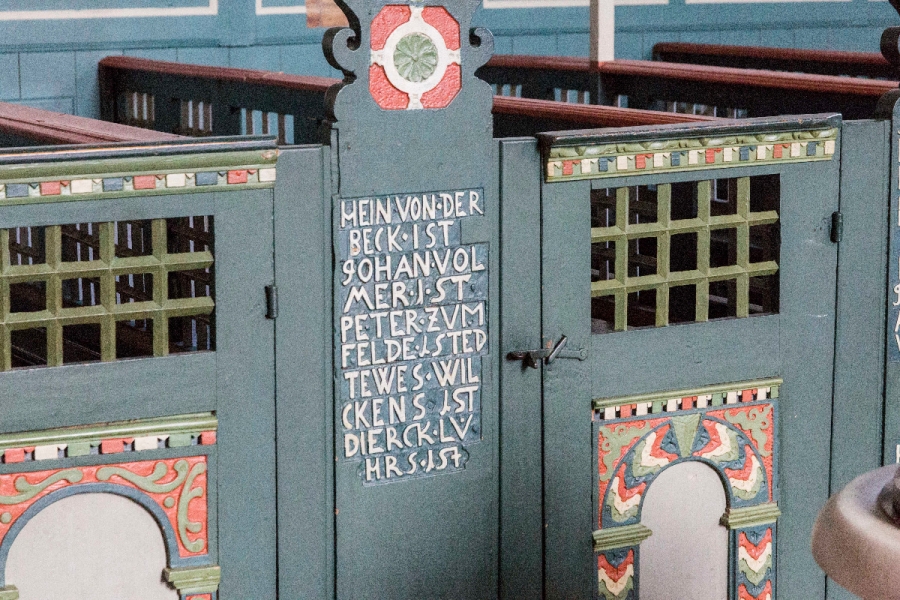 HEIN·VON·DER
BECK·IST
JOHAN·VOL
MER·IST
PETER·ZVM
FELDE·ISTED
TEWES·WIL
CKENS IST
DIERCK·LV
HRS·IST